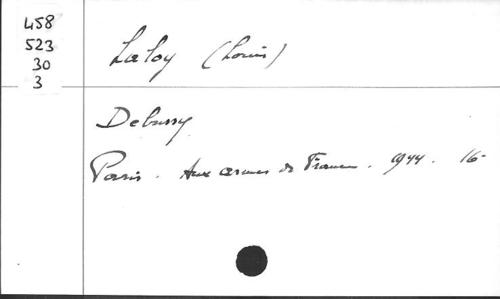 458
523
30
3
Laloy (Louis)
Debussy
Paris. Aux armes de France. 1944. 16-